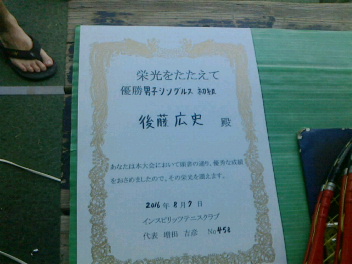 栄光をたたえて
優勝 男子シングルス 初級
後藤 広史 殿
あなたは本大会において頭書の通り、優秀な成績
をおさめましたので、その栄光を讃えます。
2016年8月7日
インスピリッツテニスクラブ
代表 増田 吉彦 No458